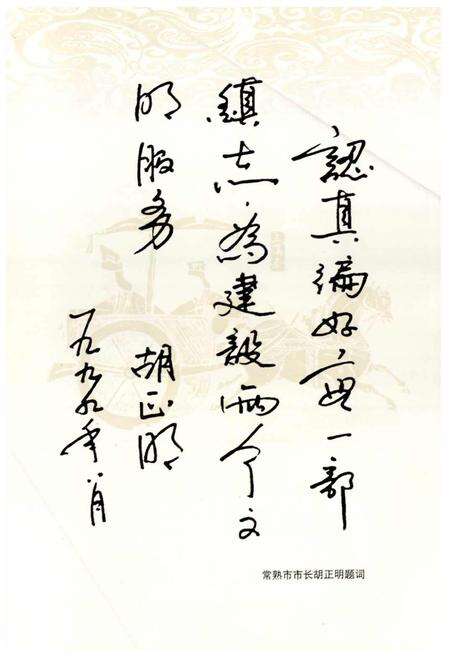 認真編好每一部
鎮志,為建設兩个文
明服务
胡正明
一九九九年八月
常熟市市长胡正明题词